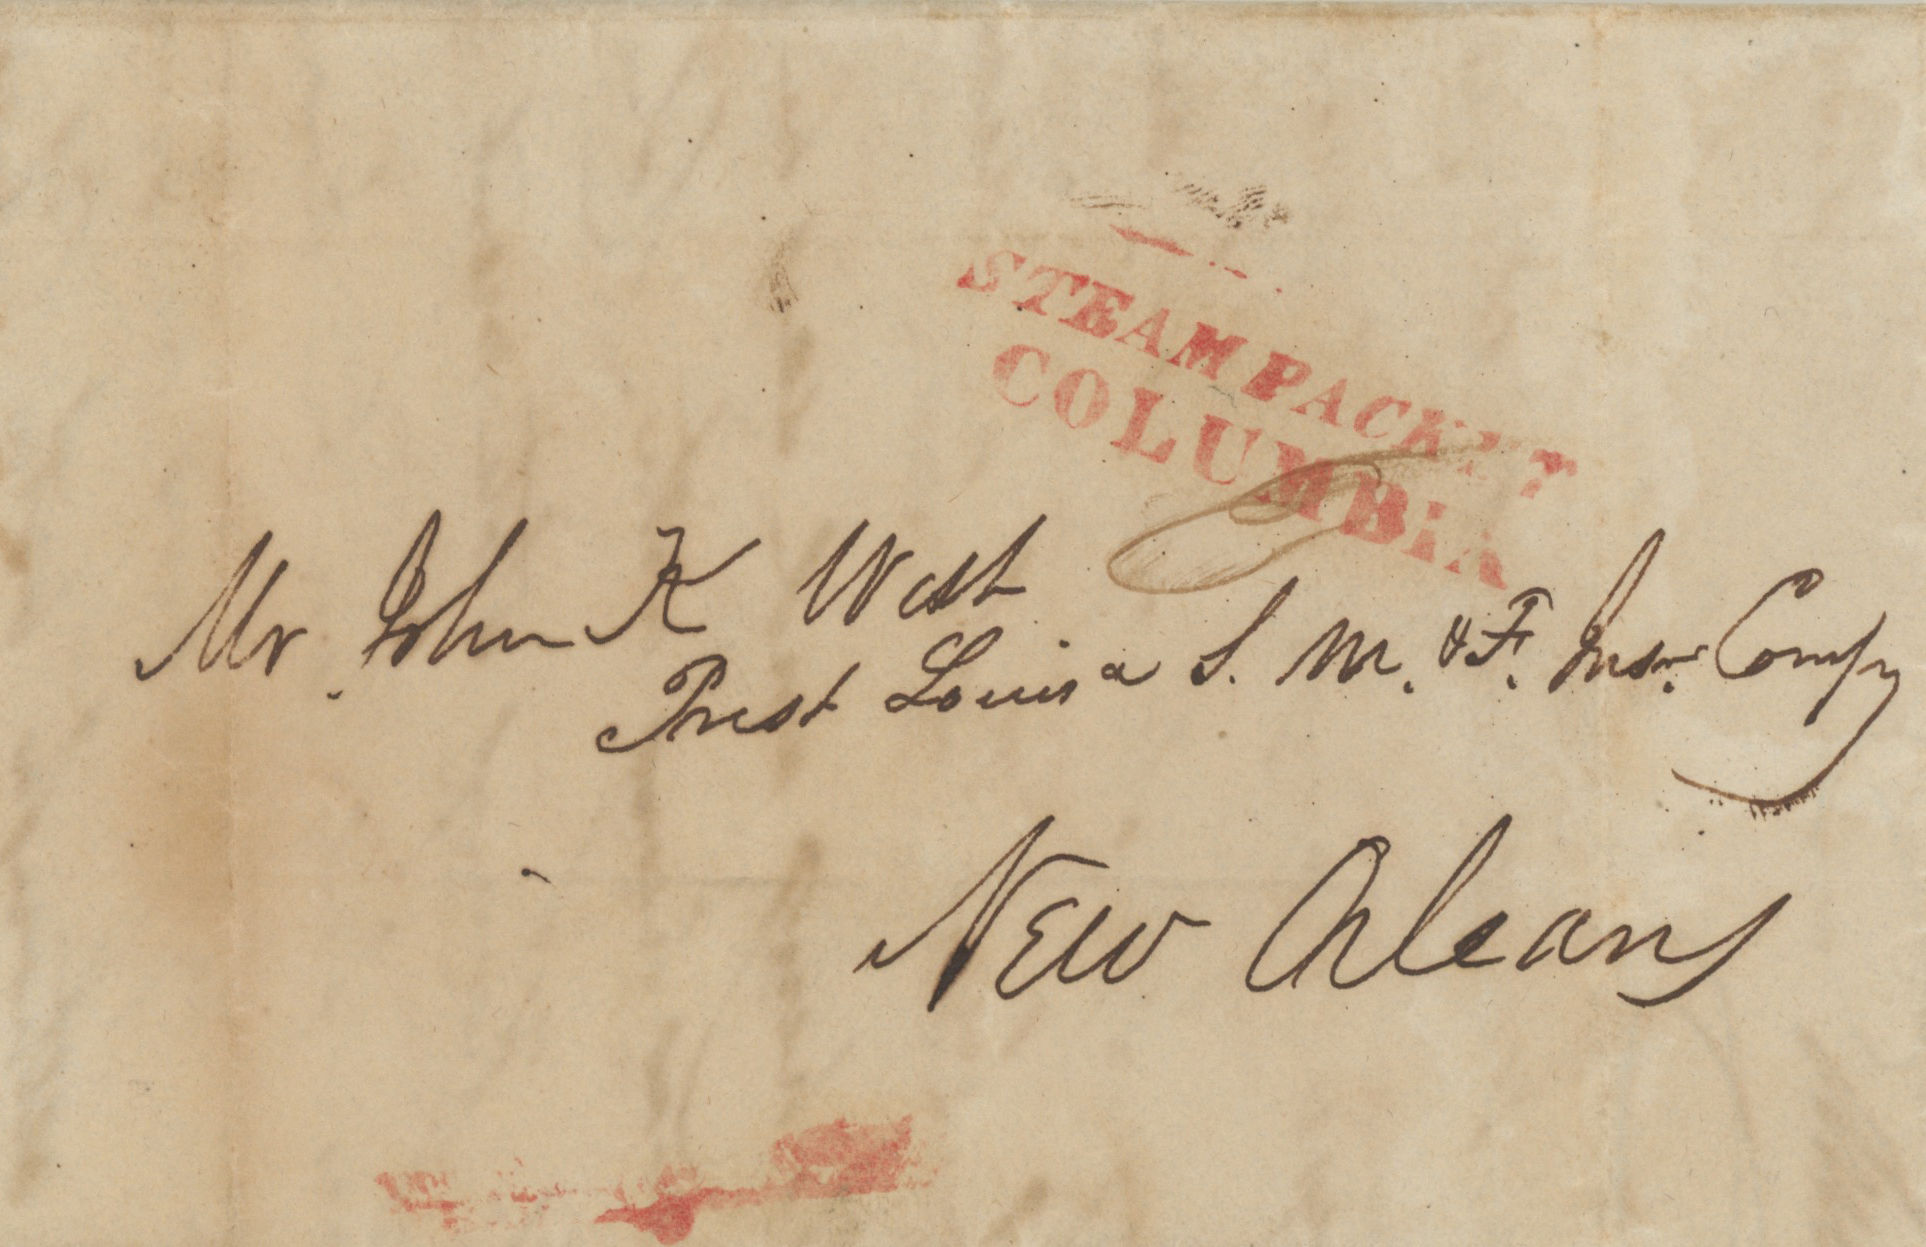 STEAM PACKET
COLUMBIA
Mr. John K West
Prest Louisa S. M. & F. Insce Compy
New Orleans